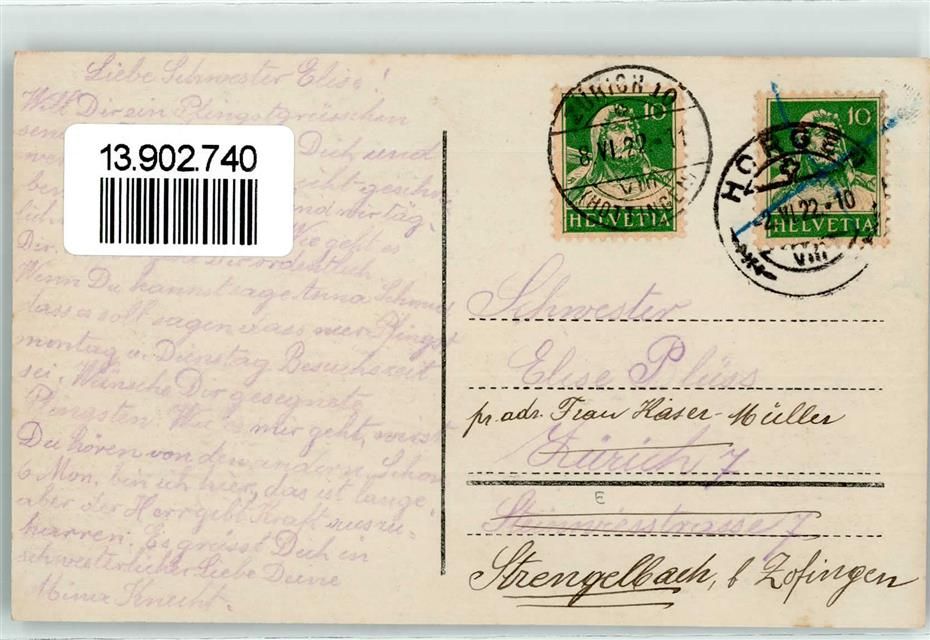 Liebe Schwester Elise!
Will Dir ein Pfingstgrüsschen
Dich und
13.902.740
Wie geht es
Dir ordentlich.
Wenn Du kannst sage Anna Schmid
dass es soll sagen dass nur Pfingst
montag u. Dienstag Besuchszeit
sei. Wünsche Dir gesegnete
Pfingsten. Wie es mir geht, wirst
Du hören von den andern. Schon
6 Mon. bin ich hier, das ist lange
aber der Herr gibt Kraft auszu-
harren. Es grüsst Dich in
schwesterlicher Liebe Deine
Mina Knecht.
ZÜRICH 10
8.VI.22.-11
VIII
(HOTTINGEN)
10
HELVETIA
HORGEN
-2.VI.22-10
VIII
10
HELVETIA
Schwester
Elise Plüss
pr. adr. Frau Käser-Müller
Zürich 7
E
Steinwiesstrasse 7
Strengelbach, b Zofingen